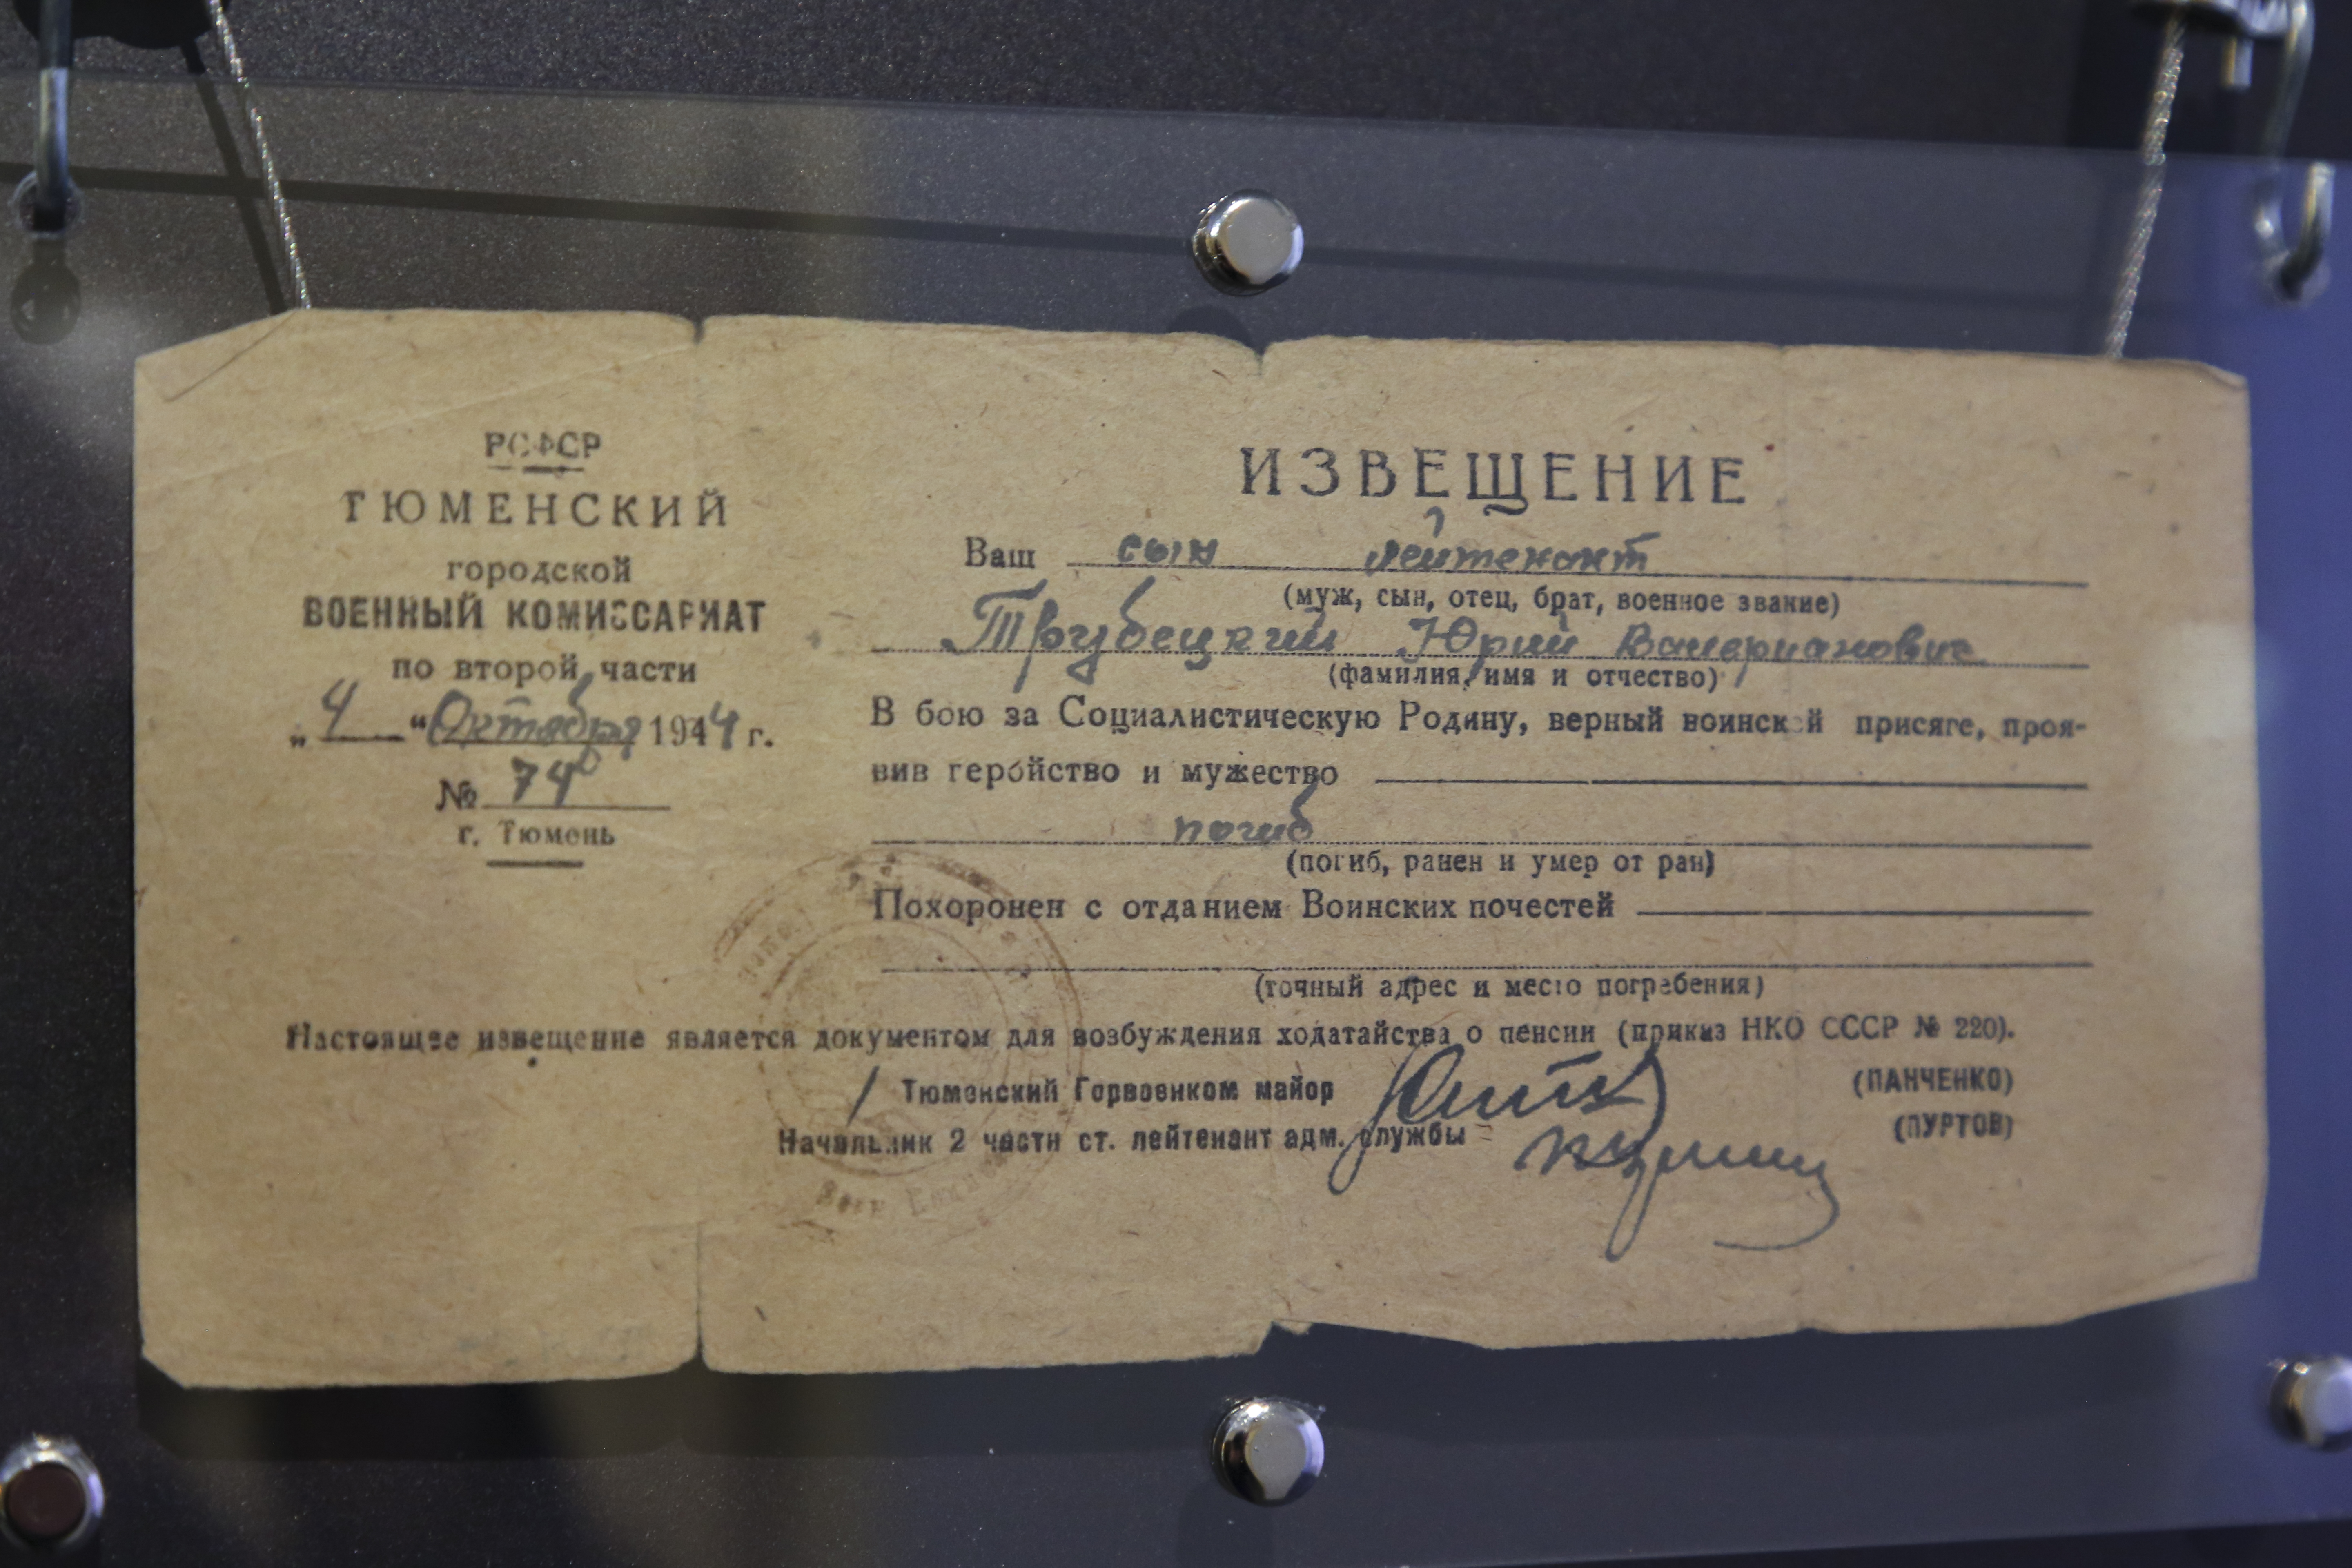 РСФСР
ТЮМЕНСКИЙ
городской
ВОЕННЫЙ КОМИССАРИАТ
по второй части
„4“ Октября 1944 г.
№ 74
г. Тюмень
ИЗВЕЩЕНИЕ
Ваш сын лейтенант
(муж, сын, отец, брат, военное звание)
Трубецкий Юрий Валерианович
(фамилия, имя и отчество)
В бою за Социалистическую Родину, верный воинской присяге, проя-
вив геройство и мужество
погиб
(погиб, ранен и умер от ран)
Похоронен с отданием Воинских почестей
(точный адрес и место погребения)
Настоящее извещение является документом для возбуждения ходатайства о пенсии (приказ НКО СССР № 220).
Тюменский Горвоенком майор (ПАНЧЕНКО)
Начальник 2 части ст. лейтенант адм. службы (ПУРТОВ)